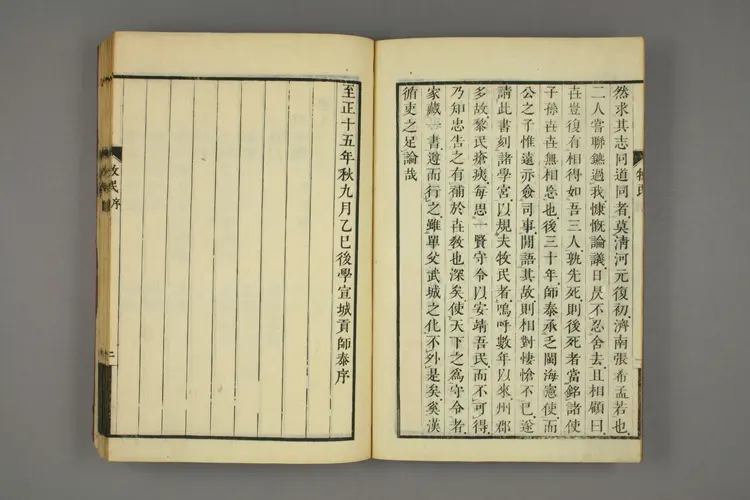 然求其志同道同者莫清河元復初濟南張希孟若也
二人嘗聯鑣過我慷慨論議日昃不忍舍去且相顧曰
在豈復有相得如吾三人孰先死則後死者當銘諸使
子孫丗丗無相忘也後三十年師泰承乏閩海憲使而
公之子惟遠亦僉司事閒語其故則相對悽愴不已遂
請此書刻諸學宮以規夫牧民者嗚呼數年以來州郡
多故黎民瘡痍每思一賢守令以安靖吾民而不可得
乃知忠告之有補於丗敎也深矣使天下之爲守令者
家藏一書遵而行之雖單父武城之化不外是矣奚漢
循吏之足論哉
至正十五年秋九月乙巳後學宣城貢師泰序
牧民
序
二